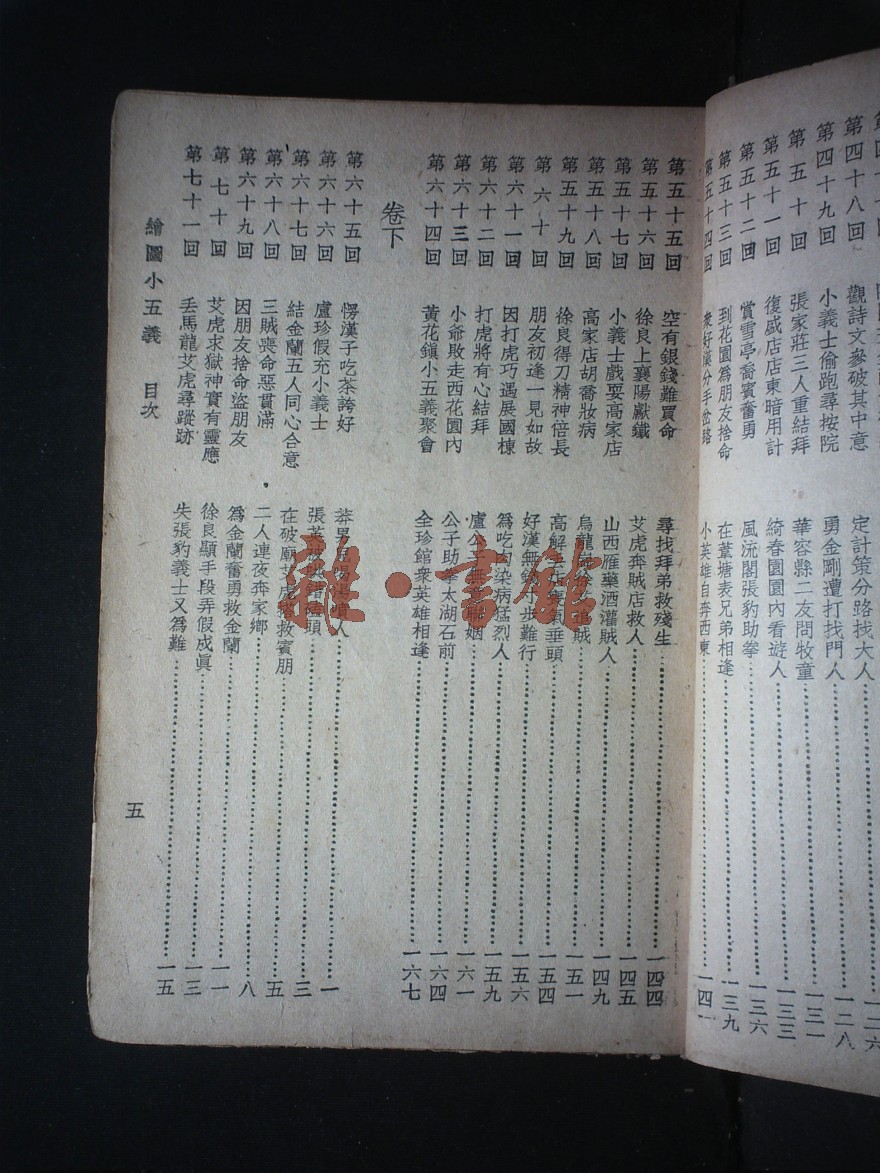 第四十八回 觀詩文參破其中意 定計策分路找大人 一二六
第四十九回 小義士偷跑尋按院 勇金剛遭打找門人 一二八
第五十回 張家莊三人重結拜 華容縣二友問牧童 一三一
第五十一回 復盛店店東暗用計 綺春園園內看遊人 一三三
第五十二回 賞雪亭喬賓奮勇 風流閣張豹助拳 一三六
第五十三回 到花園爲朋友捨命 在葦塘表兄弟相逢 一三九
第五十四回 衆好漢分手岔路 小英雄自奔西東
第五十五回 空有銀錢難買命 尋找拜弟救殘生 一四四
第五十六回 徐良上襄陽獻鐵 艾虎奔賊店救人 一四五
第五十七回 小義士戲耍高家店 山西雁藥酒灌賊人 一四九
第五十八回 高家店胡喬妝病 烏龍 賊 一五一
第五十九回 徐良得刀精神倍長 高解 氣垂頭 一五四
第六十回 朋友初逢一見如故 好漢無錢 步難行 一五六
第六十一回 因打虎巧遇展國棟 爲吃肉染病猛烈人 一五九
第六十二回 打虎將有心結拜 盧公子無 聯姻 一六一
第六十三回 小爺敗走西花園內 公子助拳太湖石前 一六四
第六十四回 黃花鎮小五義聚會 全珍館衆英雄相逢 一六七
卷下
第六十五回 愣漢子吃茶誇好 莽男兒 人 一
第六十六回 盧珍假充小義士 張英 頭 三
第六十七回 結金蘭五人同心合意 在破廟艾虎 救賓朋 五
第六十八回 三賊喪命惡貫滿 二人連夜奔家鄉 八
第六十九回 因朋友捨命盜朋友 爲金蘭奮勇救金蘭 一一
第七十回 艾虎求獄神實有靈應 徐良顯手段弄假成眞 一三
第七十一回 丢馬龍艾虎尋蹤跡 失張豹義士又爲難 一五
繪圖小五義 目次
五
雜·書館